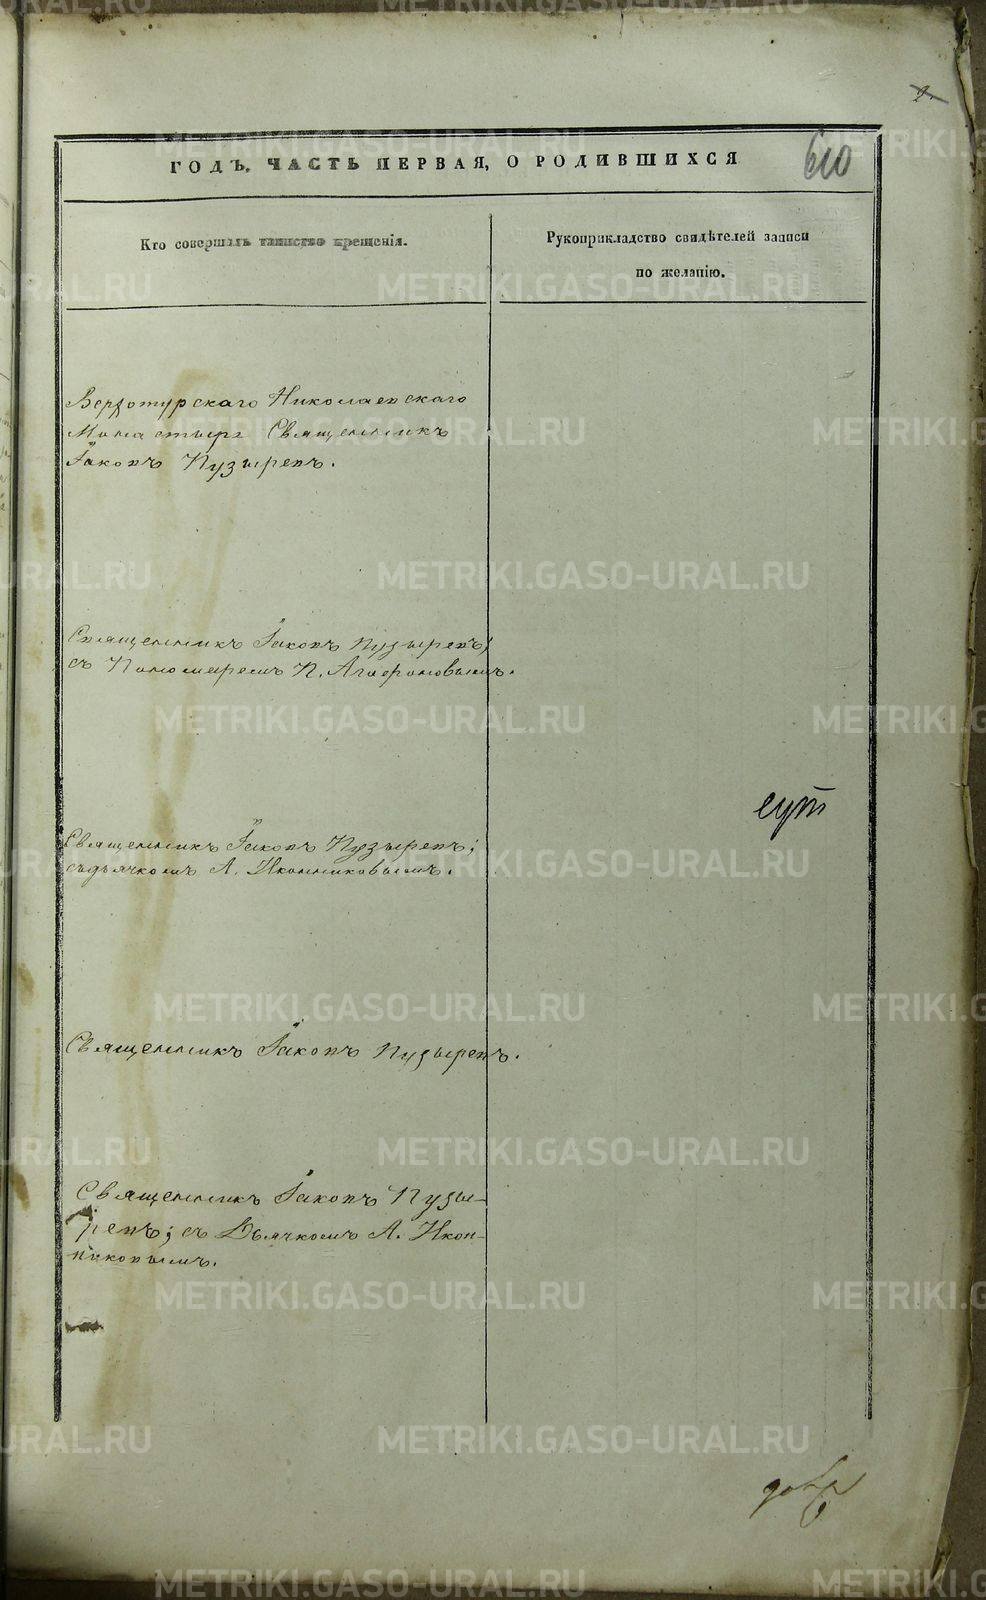 610
ГОДЪ. ЧАСТЬ ПЕРВАЯ, О РОДИВШИХСЯ
Кто совершалъ таинство крещенія.
Рукоприкладство свидѣтелей записи
по желанію.
Верхотурскаго Николаевскаго
Монастыря Священникъ
Іаковъ Пузыревъ.
Священникъ Іаковъ Пузыревъ;
съ Пономаремъ П. Агафоновымъ.
Священникъ Іаковъ Пузыревъ;
съ дьячкомъ А. Иконниковымъ.
Священникъ Іаковъ Пузыревъ.
Священникъ Іаковъ Пузы-
ревъ; съ Дьячкомъ А. Икон-
никовымъ.
METRIKI.GASO-URAL.RU